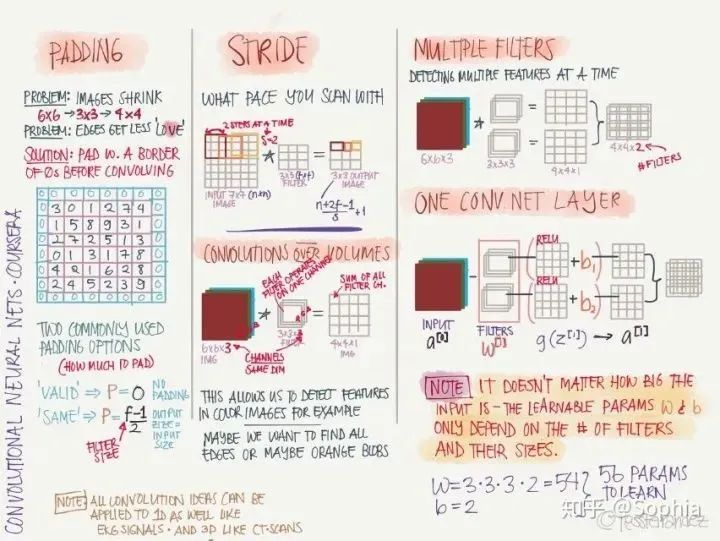 CONVOLUTIONAL NEURAL NETS · COURSERA
PADDING
PROBLEM: IMAGES SHRINK
6x6 → 3x3 → 4x4
PROBLEM: EDGES GET LESS 'LOVE'
SOLUTION: PAD W. A BORDER
OF 0s BEFORE CONVOLVING
0 0 0 0 0 0 0 0
0 3 0 1 2 7 4 0
0 1 5 8 9 3 1 0
0 2 7 2 5 1 3 0
0 0 1 3 1 7 8 0
0 4 2 1 6 2 8 0
0 2 4 5 2 3 9 0
0 0 0 0 0 0 0 0
TWO COMMONLY USED
PADDING OPTIONS
(HOW MUCH TO PAD)
'VALID' ⇒ P = 0 NO PADDING
'SAME' ⇒ P = f-1/2 OUTPUT SIZE = INPUT SIZE
FILTER SIZE
NOTE: ALL CONVOLUTION IDEAS CAN BE
APPLIED TO 1D AS WELL LIKE
EKG SIGNALS · AND 3D LIKE CT-SCANS
STRIDE
WHAT PACE YOU SCAN WITH
2 STEPS AT A TIME
S=2
*
=
INPUT 7x7 (n×n)
IMAGE
3x3 (f×f)
FILTER
3x3 OUTPUT
IMAGE
CONVOLUTIONS OVER VOLUMES
EACH
FILTER OPERATES
ON ONE CHANNEL
SUM OF ALL
FILTER CH.
*
=
6x6x3
IMG
3x3x3
FILTER
4x4x1
IMG
CHANNELS
SAME DIM
THIS ALLOWS US TO DETECT FEATURES
IN COLOR IMAGES FOR EXAMPLE
MAYBE WE WANT TO FIND ALL
EDGES OR MAYBE ORANGE BLOBS
MULTIPLE FILTERS
DETECTING MULTIPLE FEATURES AT A TIME
*
=
=
6x6x3
3x3x3
4x4x1
4x4x2
#FILTERS
ONE CONV.NET LAYER
RELU
( + b₁)
RELU
( + b₂)
INPUT
a[0]
FILTERS
W[1]
g(z[1]) → a[1]
NOTE IT DOESN'T MATTER HOW BIG THE
INPUT IS - THE LEARNABLE PARAMS W & b
ONLY DEPEND ON THE # OF FILTERS
AND THEIR SIZES.
W = 3·3·3·2 = 54 } 56 PARAMS
b = 2 TO LEARN
知乎 @Sophia
@TessFerrandez